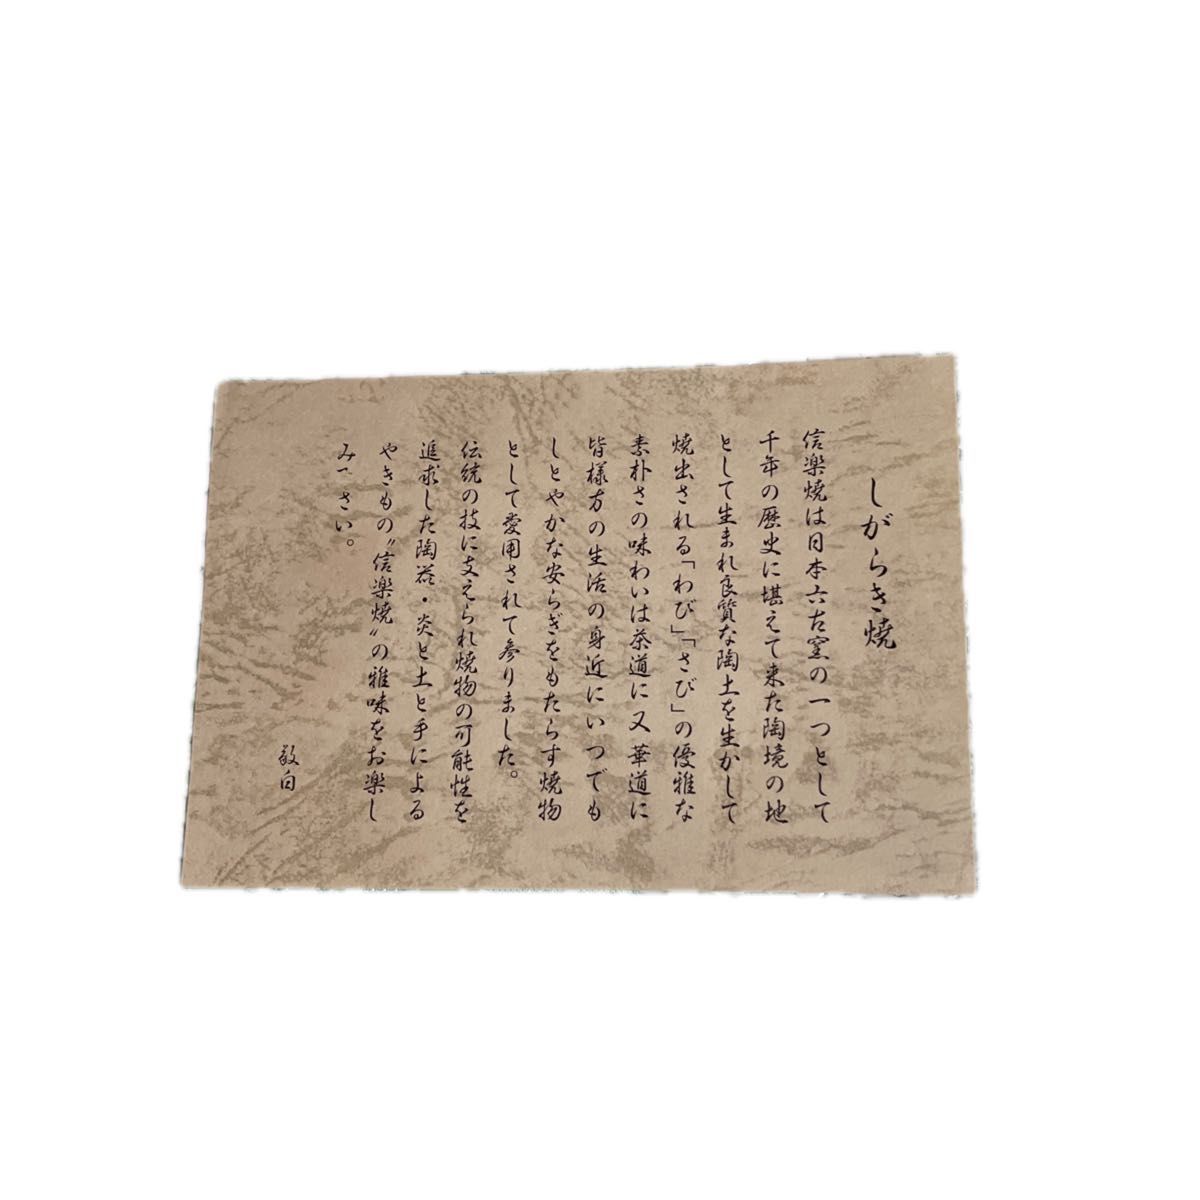 しがらき焼
信楽焼は日本六古窯の一つとして
千年の歴史に堪えて来た陶境の地
として生まれ良質な陶土を生かして
焼出される「わび」「さび」の優雅な
素朴さの味わいは茶道に又華道に
皆様方の生活の身近にいつでも
しとやかな安らぎをもたらす焼物
として愛用されて参りました。
伝統の技に支えられ焼物の可能性を
追求した陶器・炎と土と手による
やきもの〝信楽焼〟の雅味をお楽し
み さい。
敬白